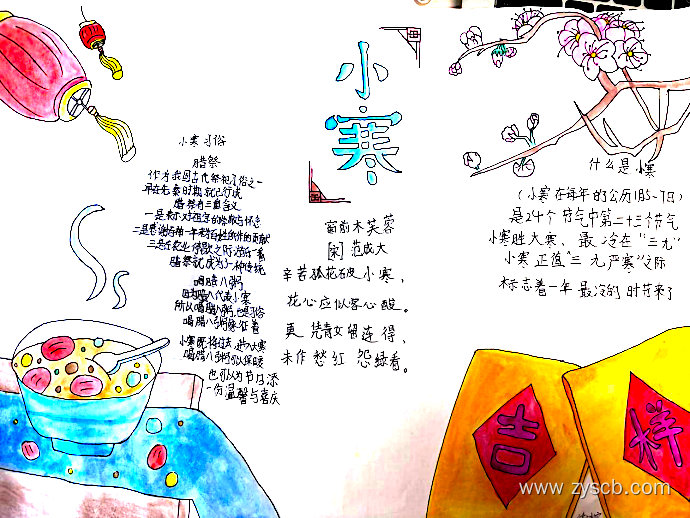 小寒
小寒习俗
腊祭
作为我国古代祭祀习俗之一
早在先秦时期就已行成
腊祭有三重含义
一是表示对祖宗的
三是农业
腊祭就成为了一种传统
喝腊八粥
因为腊八代表小寒
所以喝腊八粥,也是习俗
喝腊八粥
小寒
喝腊八粥可以保暖
也可以为节日添
一份温馨与喜庆
窗前木芙蓉
[宋] 范成大
辛苦孤花破小寒,
花心应似客心酸。
更凭青女留连得,
未作愁红怨绿看。
什么是小寒
(小寒在每年的公历1月5-7日)
是24个节气中第二十三个节气
小寒胜大寒、最冷在“三九”
小寒正值“三九严寒”之际
标志着一年最冷的时节来了
吉祥
www.zyscb.com